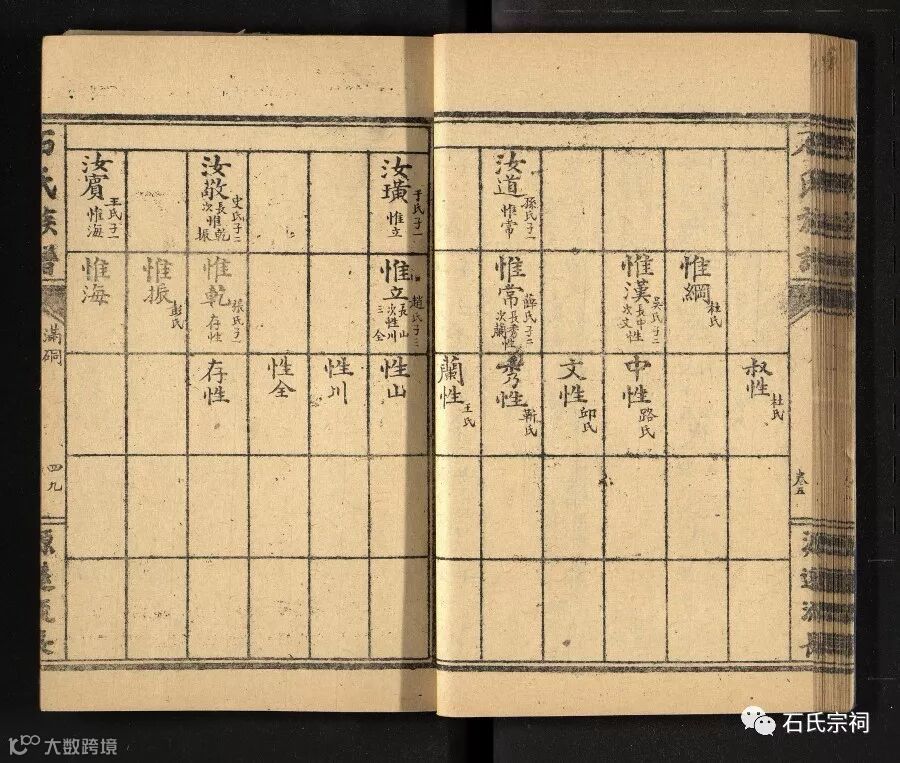 石氏族譜
卷五
源遠流長
汝道 孫氏子一 惟常
惟綱 杜氏
惟漢 吳氏子二 長中性 次文性
惟常 薛氏子二 長秀性 次蘭性
叔性 杜氏
中性 路氏
文性 邱氏
秀性 靳氏
蘭性 王氏
汝璜 于氏子一 惟立
汝敬 史氏子二 長惟乾 次惟振
汝賓 王氏子一 惟海
惟立 趙氏子三 長性山 次性川 三性全
惟乾 張氏子一 存性
惟振 彭氏
惟海
性山
性川
性全
存性
石氏族譜
滿硐
四九
源遠流長
石氏宗祠
大数跨境